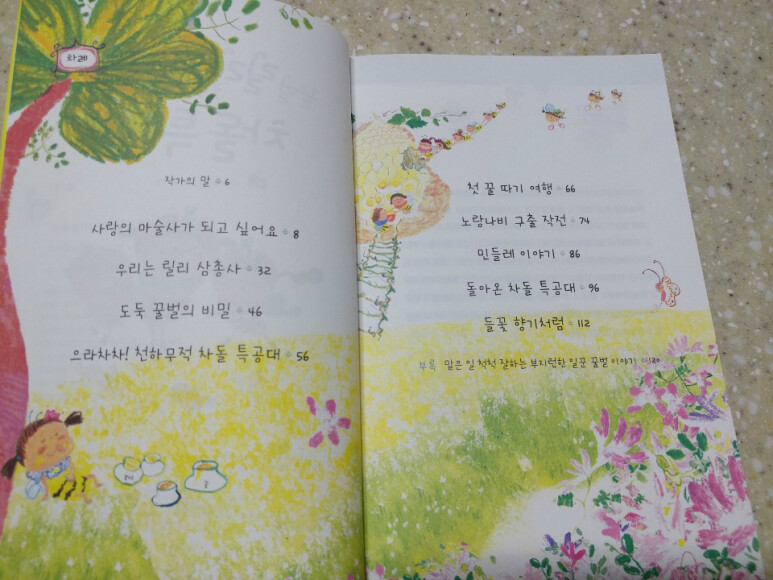 차례
작가의 말 6
사랑의 마술사가 되고 싶어요 8
우리는 릴리 삼총사 32
도둑 꿀벌의 비밀 46
으라차차! 천하무적 차돌 특공대 56
첫 꿀 따기 여행 66
노랑나비 구출 작전 74
민들레 이야기 86
돌아온 차돌 특공대 96
들꽃 향기처럼 112
부록 맡은 일 척척 잘하는 부지런한 일꾼 꿀벌 이야기 120